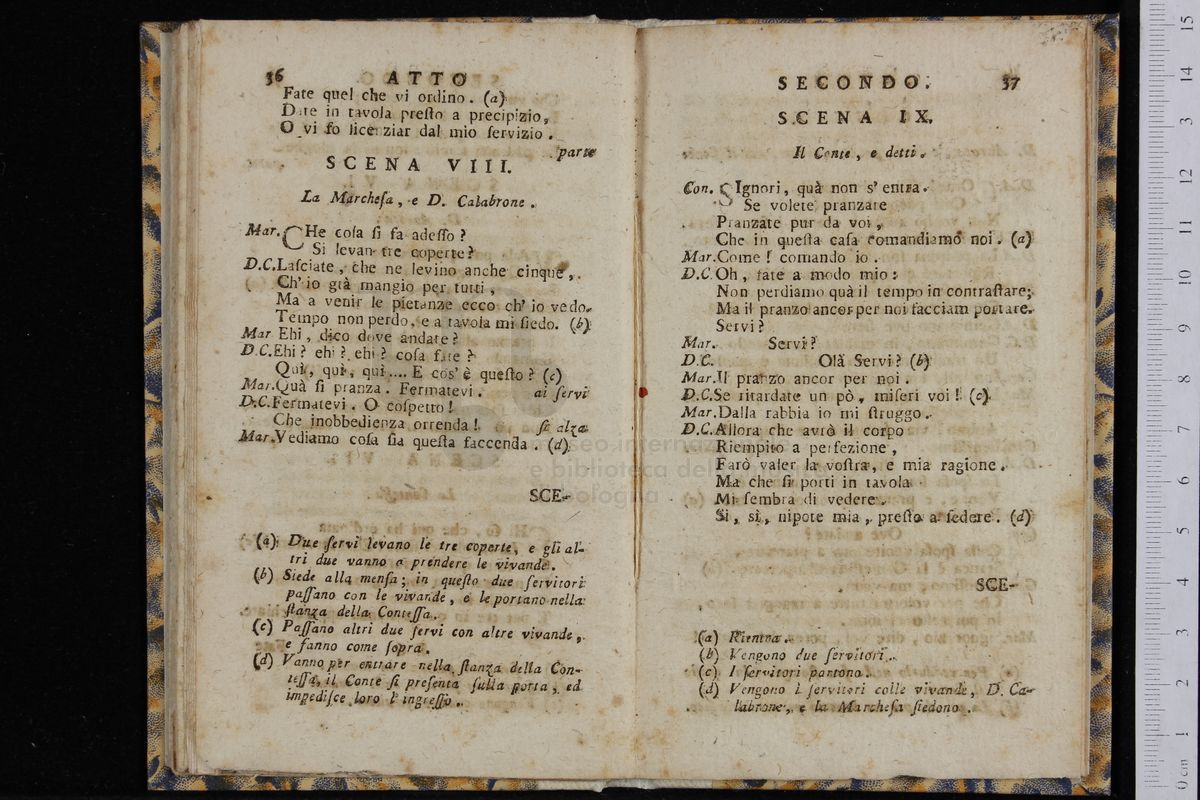 36 ATTO
Fate quel che vi ordino. (a)
Date in tavola preſto a precipizio,
O vi fo licenziar dal mio ſervizio.
parte
SCENA VIII.
La Marcheſa, e D. Calabrone.
Mar. CHe coſa ſi fa adeſſo?
Si levan tre coperte?
D.C. Laſciate, che ne levino anche cinque,
Ch' io già mangio per tutti,
Ma a venir le pietanze ecco ch' io vedo.
Tempo non perdo, e a tavola mi ſiedo. (b)
Mar Ehi, dico dove andate?
D.C. Ehi? ehi? ehi? coſa fate?
Qui, qui, qui.... E cos' è queſto? (c)
Mar. Quà ſi pranza. Fermatevi. ai ſervi
D.C. Fermatevi. O coſpetto!
Che inobbedienza orrenda! ſi alza
Mar. Vediamo coſa ſia queſta faccenda. (d)
SCE-
(a) Due ſervi levano le tre coperte, e gli al-
tri due vanno a prendere le vivande.
(b) Siede alla menſa; in queſto due ſervitori
paſſano con le vivande, e le portano nella
ſtanza della Conteſſa.
(c) Paſſano altri due ſervi con altre vivande,
e fanno come ſopra.
(d) Vanno per entrare nella ſtanza della Con-
teſſa, il Conte ſi preſenta ſulla porta, ed
impediſce loro l' ingreſſo.
SECONDO. 37
SCENA IX.
Il Conte, e detti.
Con. SIgnori, quà non s' entra.
Se volete pranzare
Pranzate pur da voi,
Che in queſta caſa comandiamo noi. (a)
Mar. Come! comando io.
D.C. Oh, fate a modo mio:
Non perdiamo quà il tempo in contraſtare;
Ma il pranzo ancor per noi facciam portare.
Servi?
Mar. Servi?
D.C. Olà Servi? (b)
Mar. Il pranzo ancor per noi.
D.C. Se ritardate un pò, miſeri voi! (c)
Mar. Dalla rabbia io mi ſtruggo.
D.C. Allora che avrò il corpo
Riempito a perfezione,
Farò valer la voſtra, e mia ragione.
Ma che ſi porti in tavola
Mi ſembra di vedere.
Si, sì, nipote mia, preſto a ſedere. (d)
SCE-
(a) Rientra.
(b) Vengono due ſervitori.
(c) I ſervitori partono.
(d) Vengono i ſervitori colle vivande, D. Ca-
labrone, e la Marcheſa ſiedono.
museo internazionale
e biblioteca della
bologna
0 cm 1 2 3 4 5 6 7 8 9 10 11 12 13 14 15